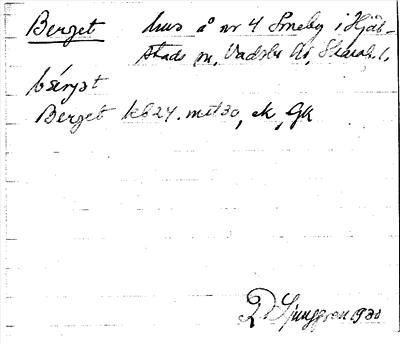 Berget hus å nr 4 Smeby i Hjäl-
stads sn, Vadsbo hd, Skarab. l.
bärjət
Berget kb 27. mtl 30, ek, Gk
D Ljunggren 1930